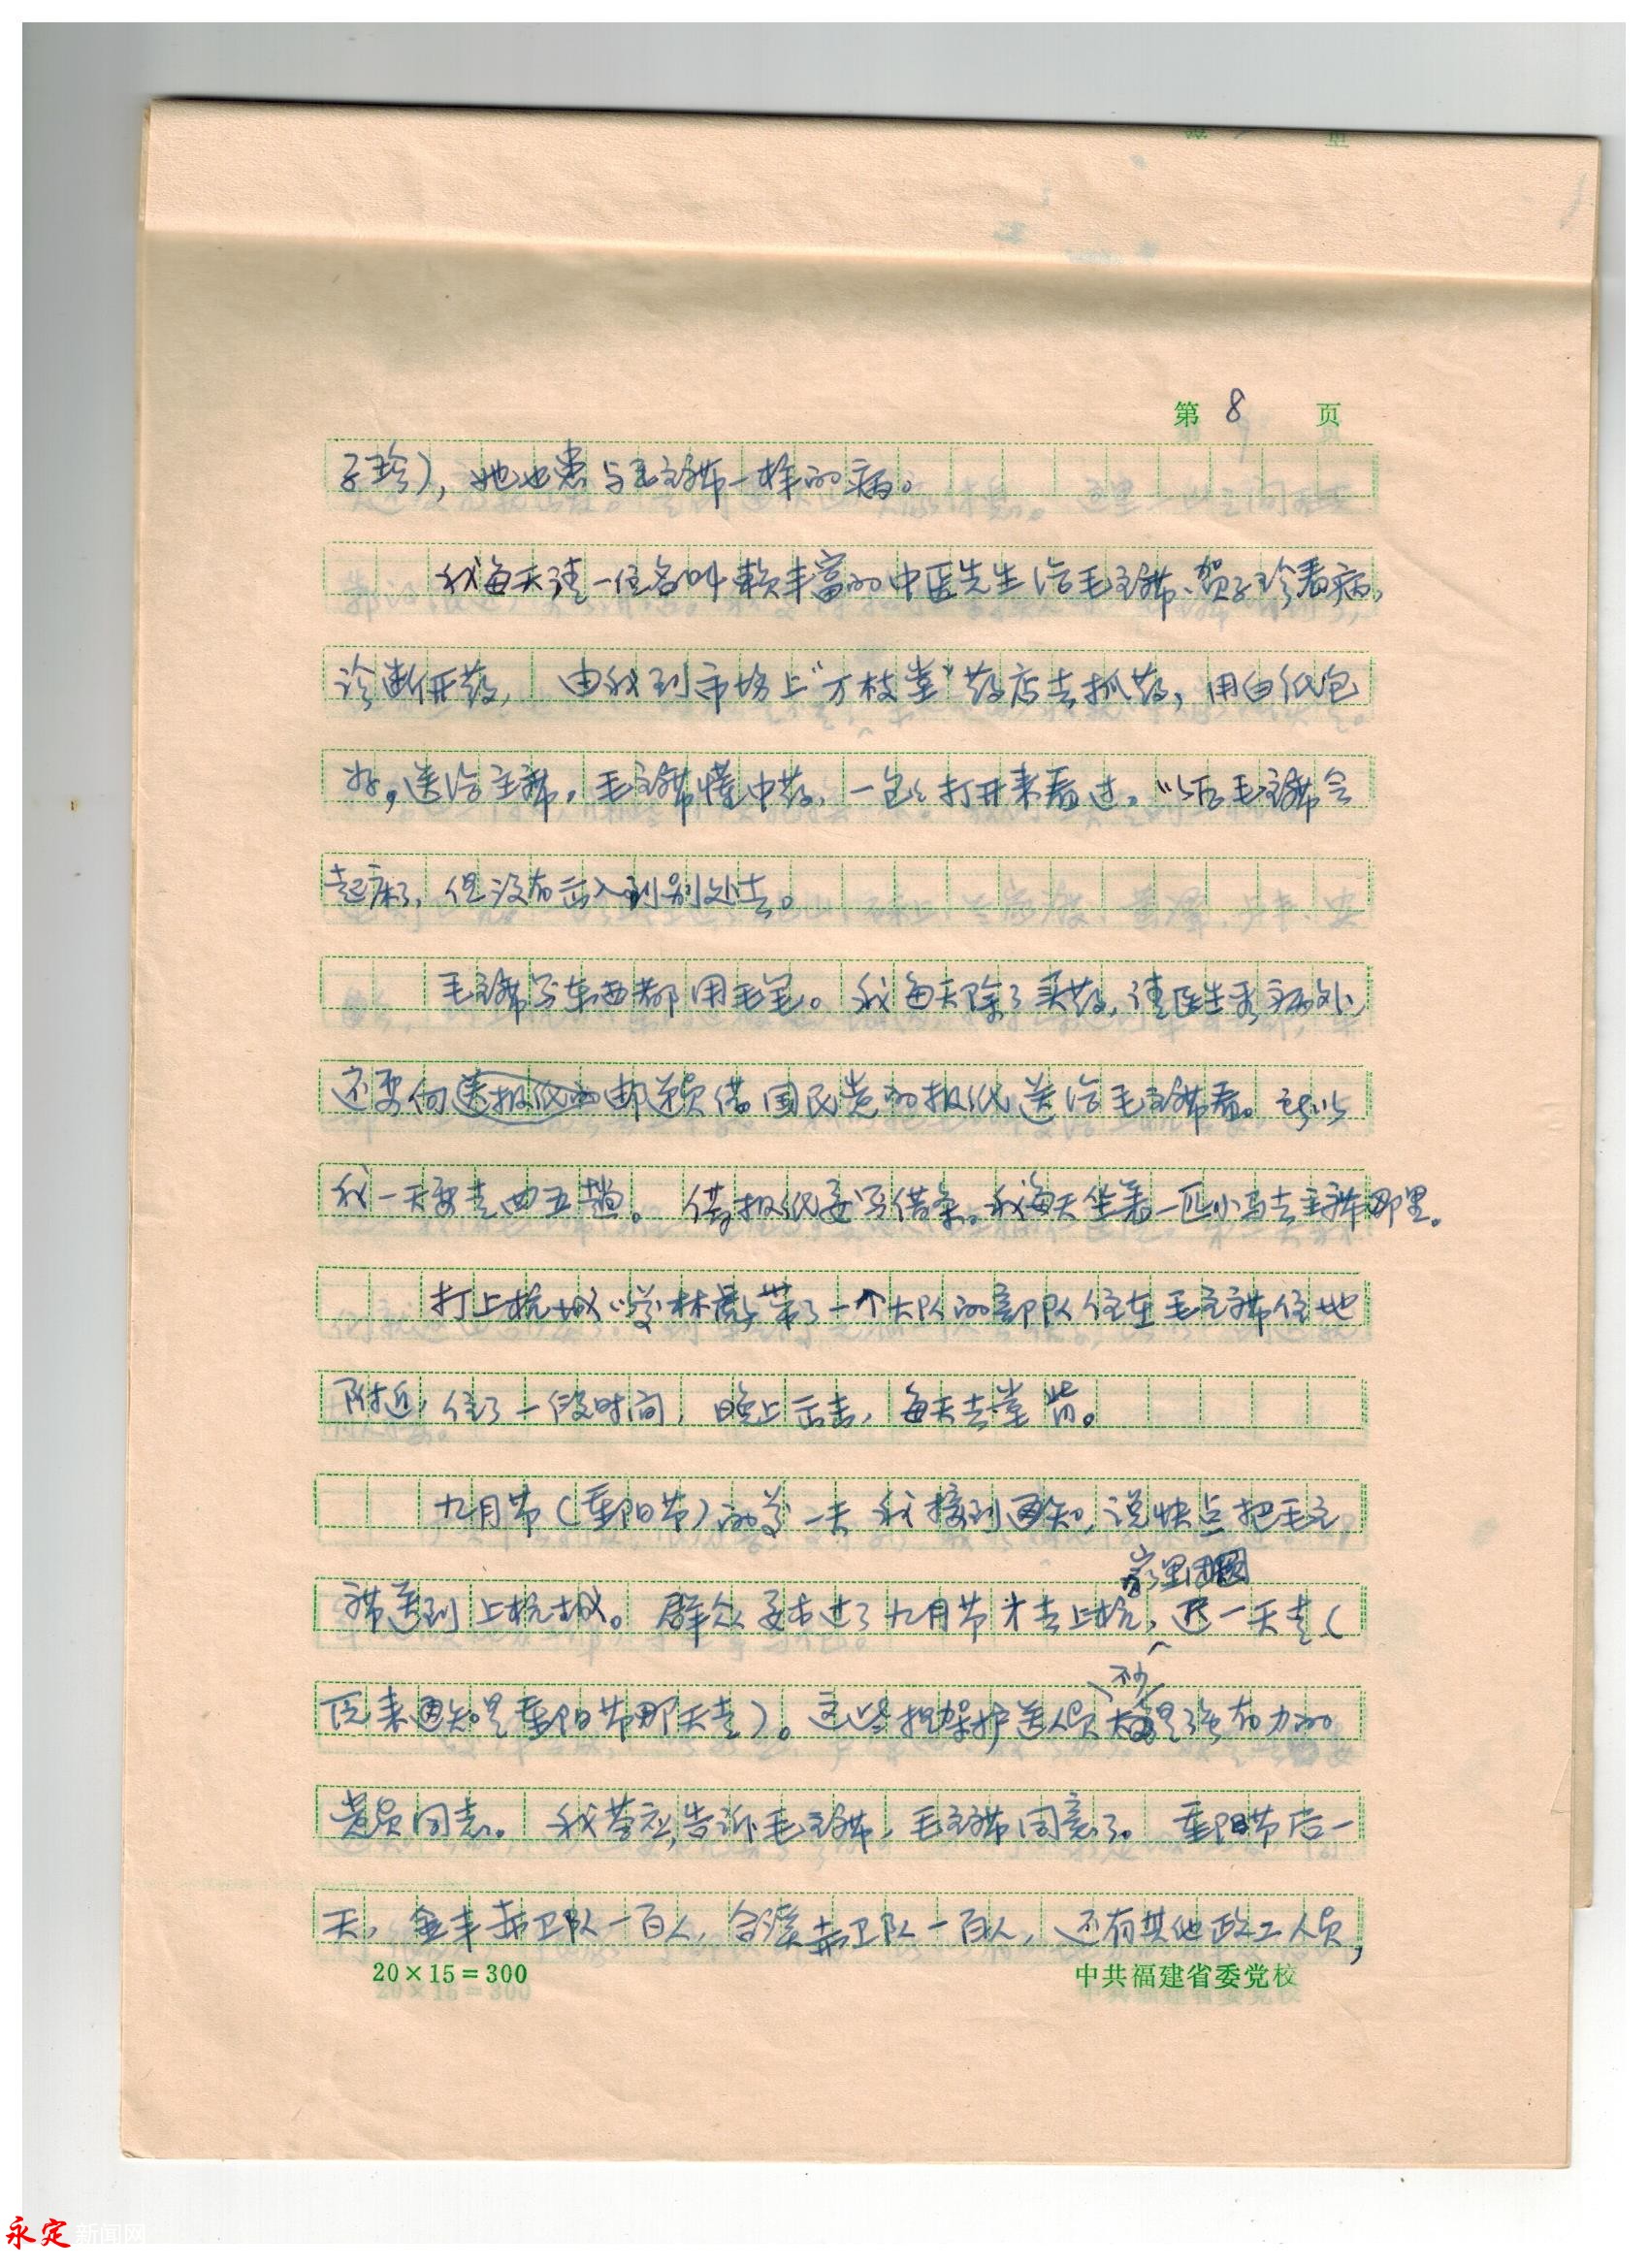 第 8 页
子珍），她也患与毛主席一样的病。
我每天请一位名叫赖丰富的中医先生给毛主席、贺子珍看病，
诊断开药，由我到市场上“万枝堂”药店去抓药，用白纸包
好，送给主席。毛主席懂中药，一包々打开来看过。以后毛主席会
起床了，但没有出入到别处去。
毛主席写东西都用毛笔。我每天除了买药，请医生看病外，
还要向送报纸的邮递员借国民党的报纸送给毛主席看。所以
我一天要走四五趟。借报纸要写借条。我每天坐着一匹小马去主席那里。
打上杭城以前林彪带了一个大队的部队住在毛主席住地
附近，住了一段时间，晚上出去，每天去堂背。
九月节（重阳节）的前一天我接到通知，说快点把毛主
家里团圆
席送到上杭城。群众要求过了九月节才去上杭，迟一天走（
不少
后来通知是重阳节那天走）。这些担架护送人员大都是强有力的
党员同志。我答应告诉毛主席，毛主席同意了。重阳节后一
天，金丰赤卫队一百人，合溪赤卫队一百人，还有其他政工人员，
20×15=300
中共福建省委党校
永定新闻网